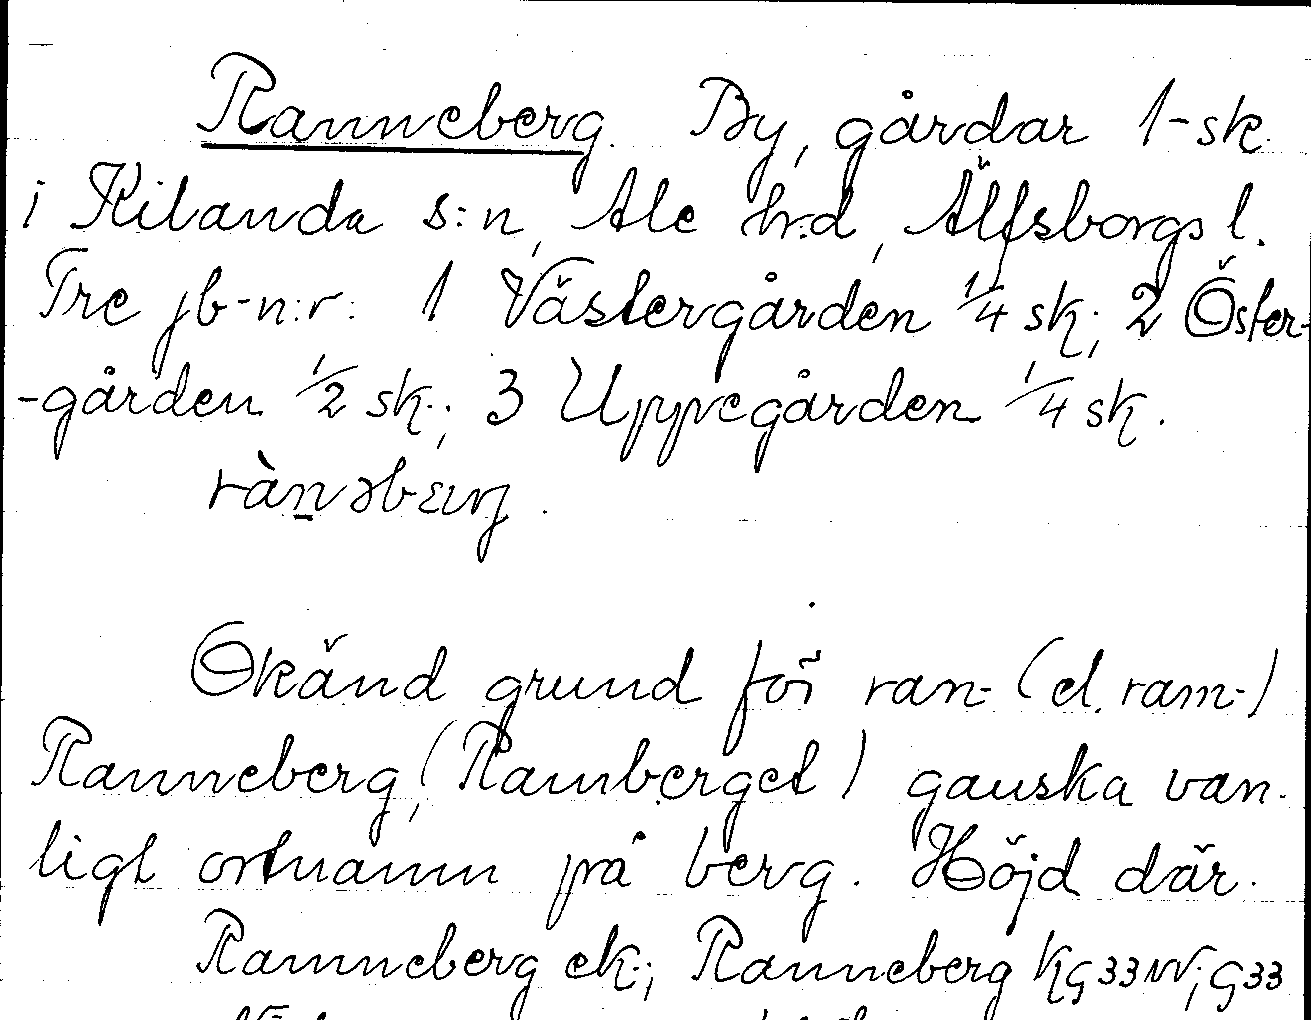 Ranneberg. By, gårdar 1-sk.
i Kilanda s:n, Ale h:d, Älfsborgs l.
Tre jb-n:r: 1 Västergården 1/4 sk; 2 Öster-
-gården 1/2 sk.; 3 Uppegården 1/4 sk.
ràn̲əbærg.
Okänd grund för ran- (el. ram-)
Ranneberg, (Ramberget) ganska van-
ligt ortnamn på berg. Höjd där.
Ranneberg ek.; Ranneberg KG33NV; G33